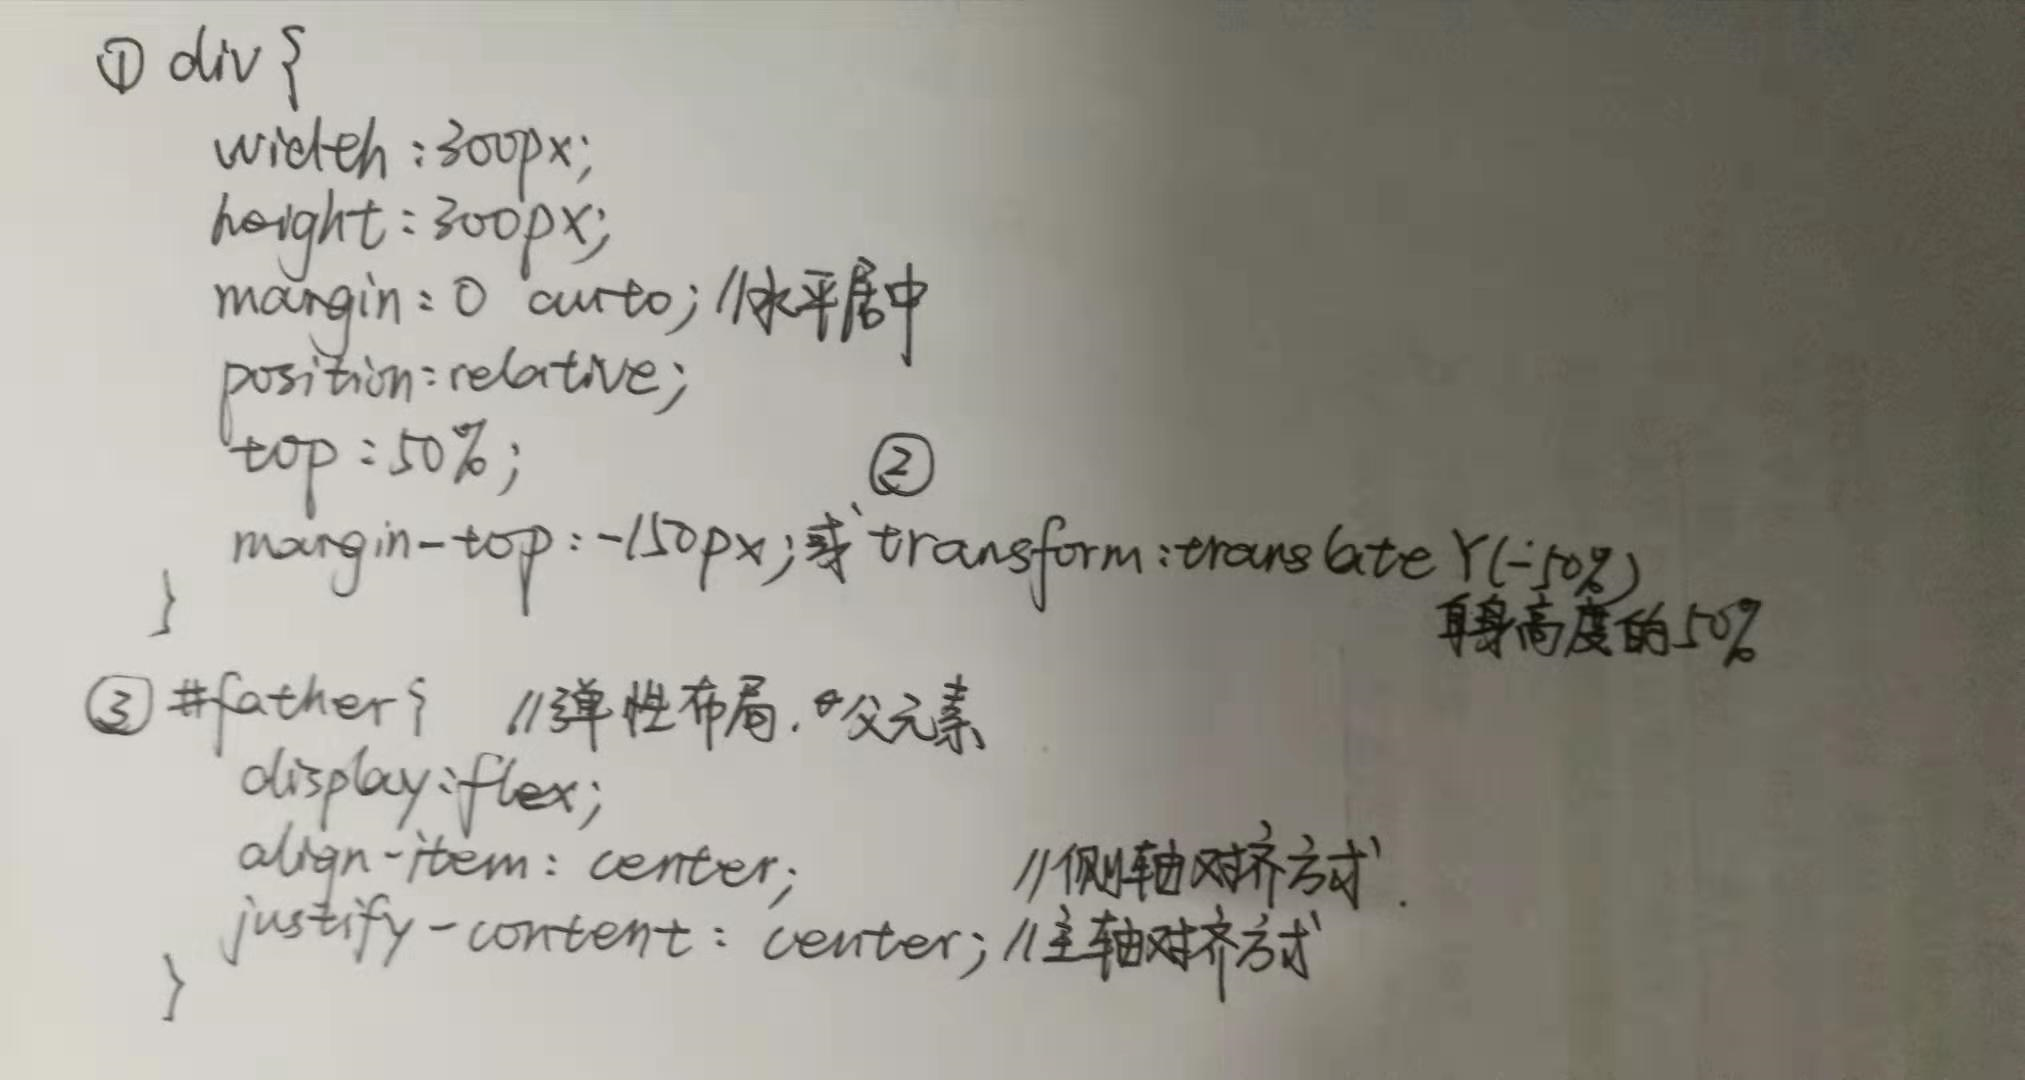 ① div{
width:300px;
height:300px;
margin:0 auto; //水平居中
position:relative;
top:50%;
②
margin-top:-150px;或 transform:translateY(-50%)
自身高度的50%
}
③ #father{ //弹性布局.父元素
display:flex;
align-item: center; //侧轴对齐方式.
justify-content: center; //主轴对齐方式
}